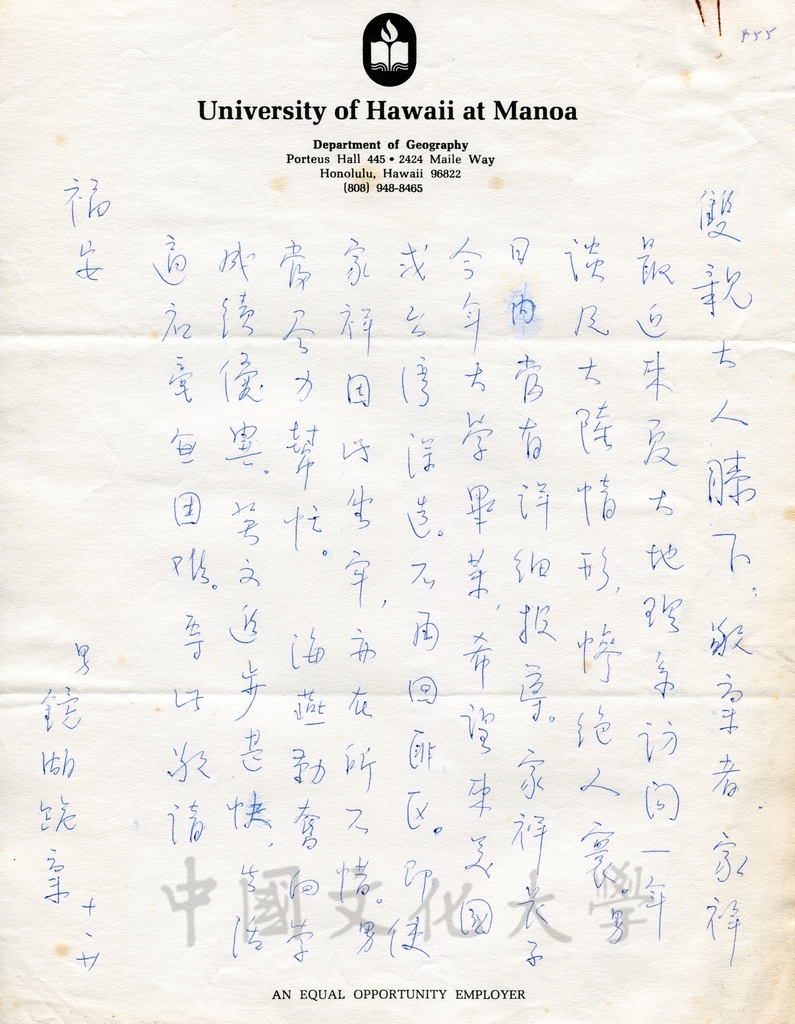 855
University of Hawaii at Manoa
Department of Geography
Porteus Hall 445 • 2424 Maile Way
Honolulu, Hawaii 96822
(808) 948-8465
雙親大人膝下:敬稟者.家祥
最近來夏大地理系訪問一年
談及大陸情形,慘絕人寰。男
日內當有詳細報導。家祥長子
今年大學畢業,希望來美國
或台灣深造。不再回匪區。即使
家祥因此坐牢,亦在所不惜。男
當盡力幫忙。海燕勤奮向學
成績優異。英文進步甚快,生活
適應毫無困難。專此敬請
福安
男鏡湖跪稟
中國文化大學
AN EQUAL OPPORTUNITY EMPLOYER